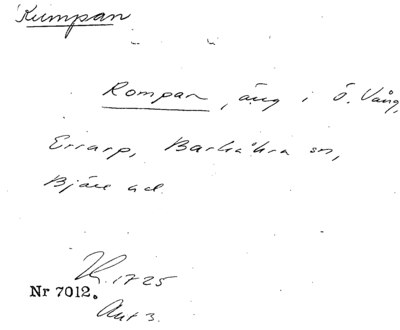 Kumpan
Rompan, äng i Ö. Vång,
Errarp, Barkåkra sn,
Bjäre hd.
1725
Nr 7012.
Akt 3.